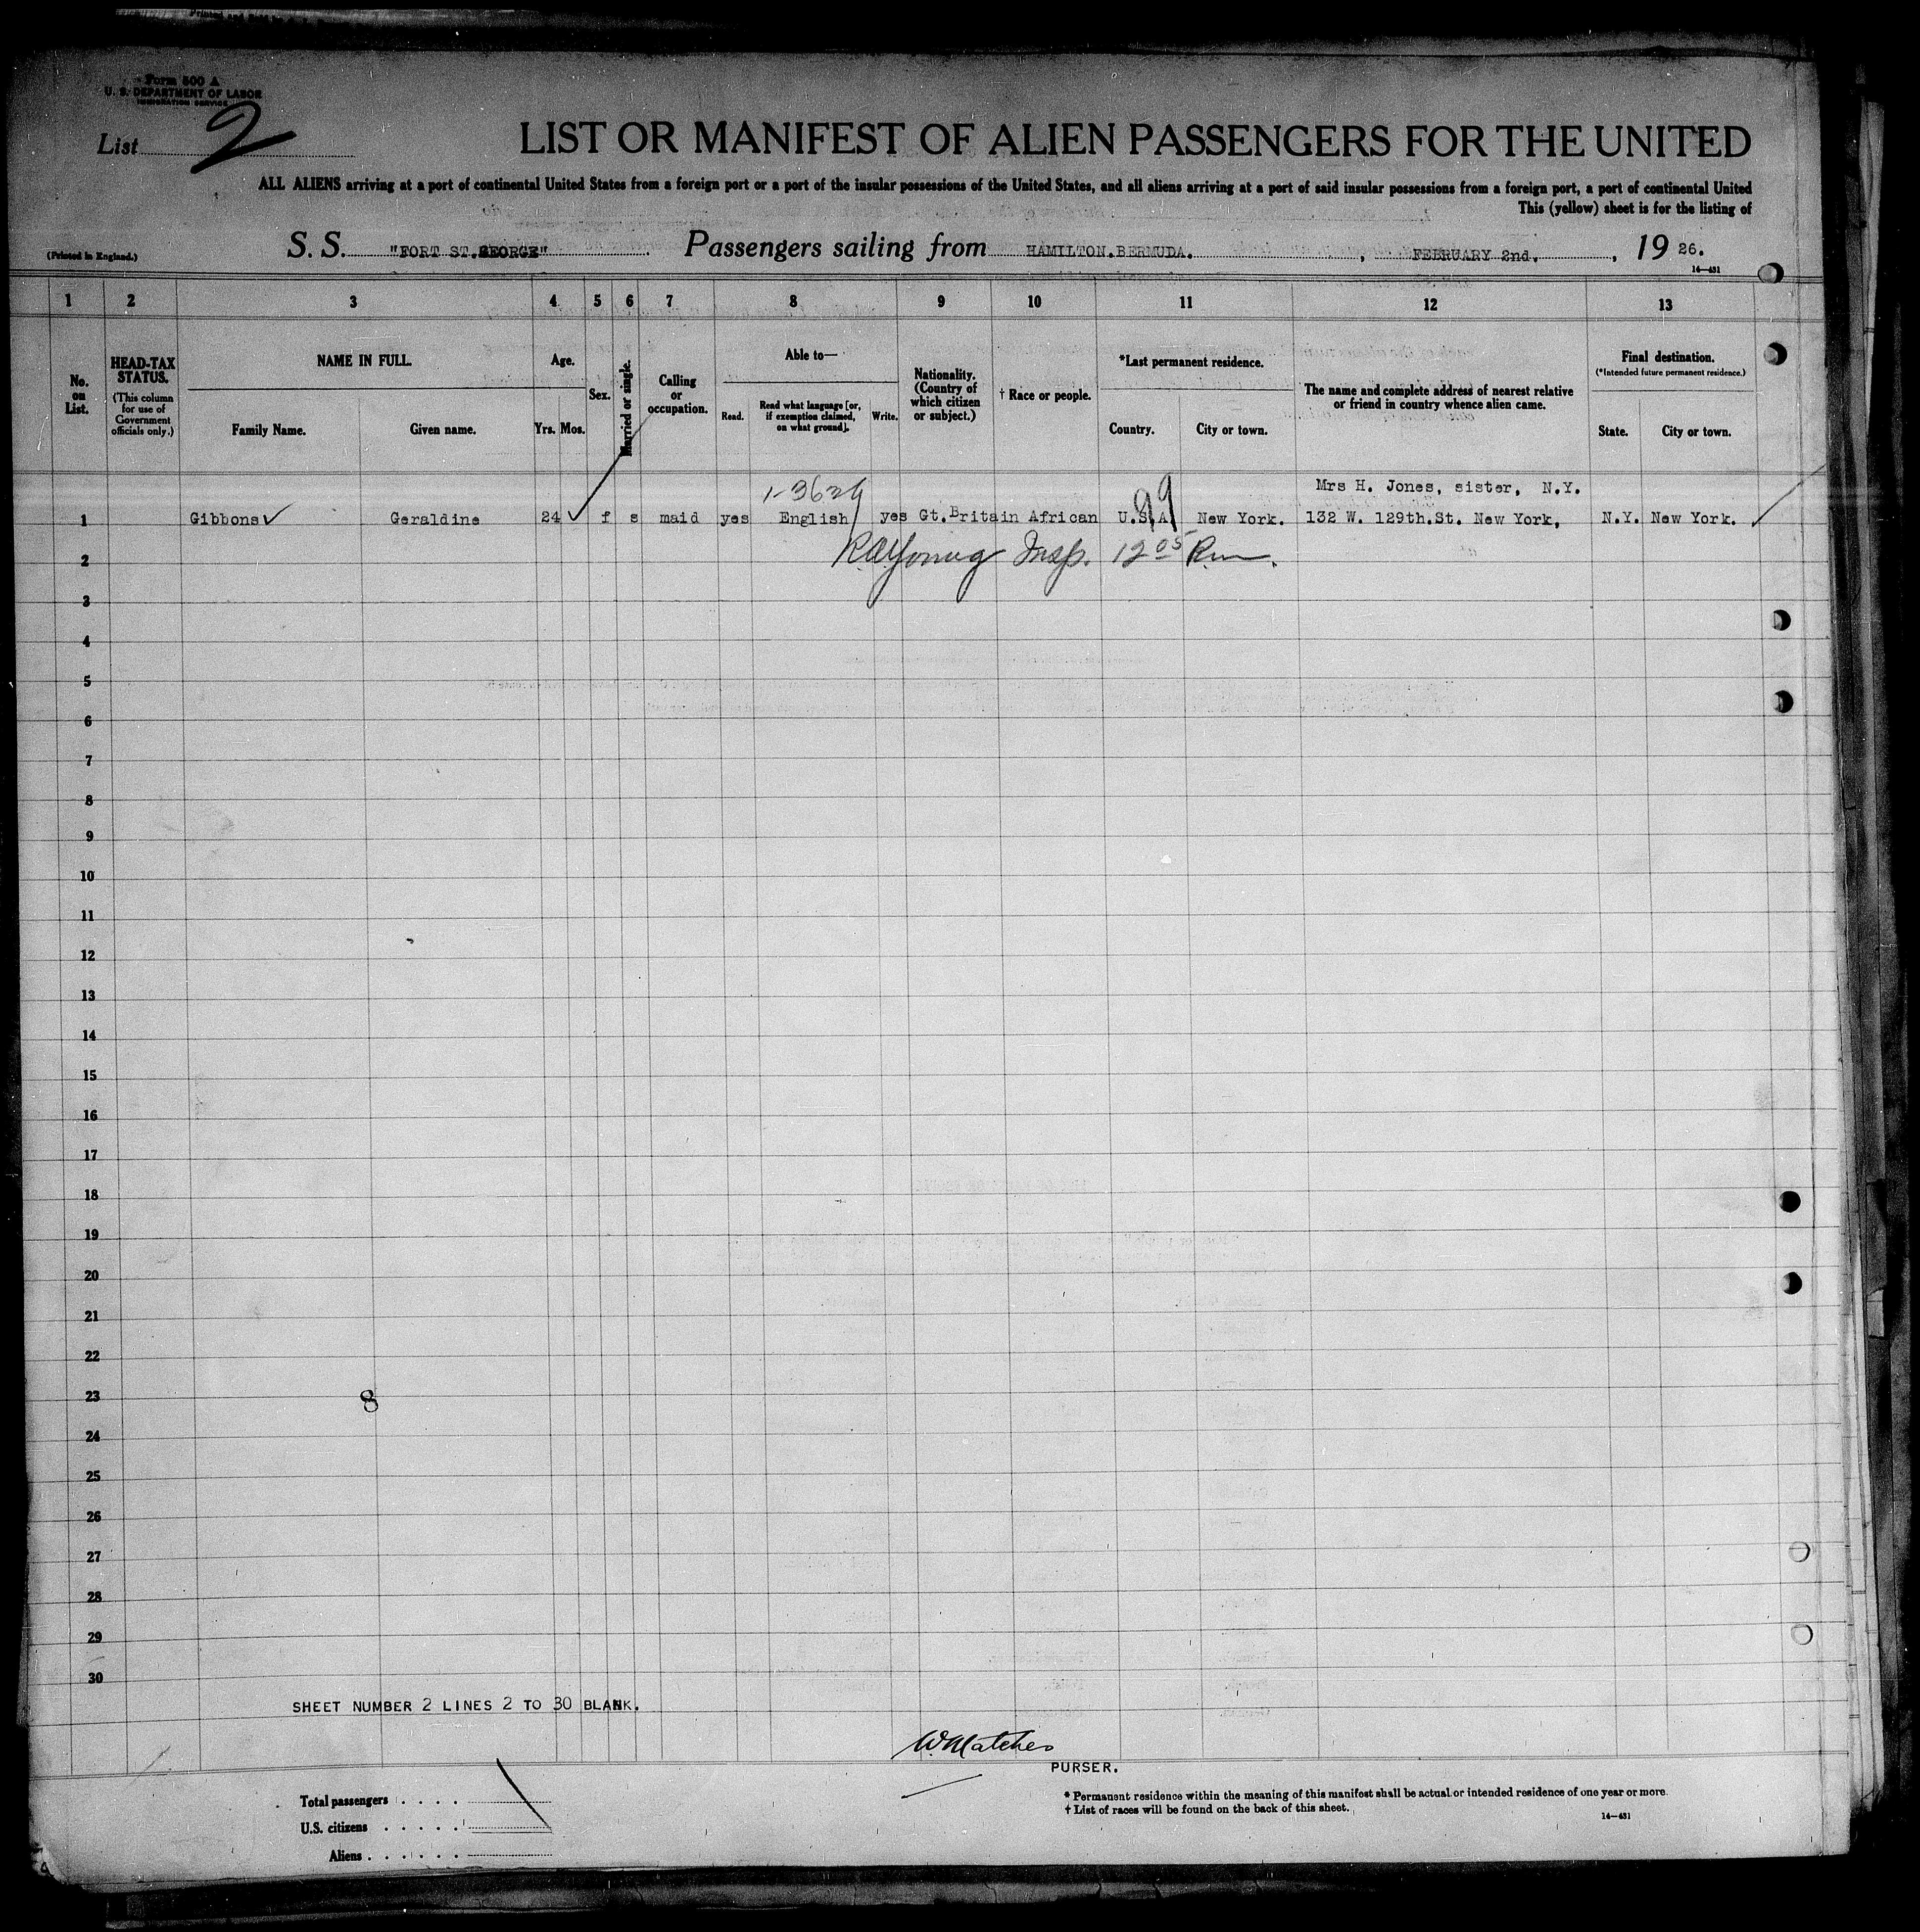 Form 500 A
U. S. DEPARTMENT OF LABOR
IMMIGRATION SERVICE
List 2
LIST OR MANIFEST OF ALIEN PASSENGERS FOR THE UNITED
ALL ALIENS arriving at a port of continental United States from a foreign port or a port of the insular possessions of the United States, and all aliens arriving at a port of said insular possessions from a foreign port, a port of continental United
This (yellow) sheet is for the listing of
(Printed in England.)
S. S. "FORT ST.GEORGE" Passengers sailing from HAMILTON.BERMUDA. , FEBRUARY 2nd. , 19 26.
14—431
1 2 3 4 5 6 7 8 9 10 11 12 13
No. on List.
HEAD-TAX STATUS.
(This column for use of Government officials only.)
NAME IN FULL.
Family Name. Given name.
Age.
Yrs. Mos.
Sex.
Married or single.
Calling or occupation.
Able to—
Read. Read what language [or, if exemption claimed, on what ground]. Write.
Nationality. (Country of which citizen or subject.)
† Race or people.
*Last permanent residence.
Country. City or town.
The name and complete address of nearest relative or friend in country whence alien came.
Final destination.
(*Intended future permanent residence.)
State. City or town.
Mrs H. Jones, sister, N.Y.
1 Gibbons Geraldine 24 f s maid yes English yes Gt.Britain African U.S.A New York. 132 W. 129th.St. New York, N.Y. New York.
99
2 Insp. 12 05
3
4
5
6
7
8
9
10
11
12
13
14
15
16
17
18
19
20
21
22
23 8
24
25
26
27
28
29
30
SHEET NUMBER 2 LINES 2 TO 30 BLANK.
PURSER.
Total passengers . . . .
U.S. citizens . . . . .
Aliens . . . . . .
* Permanent residence within the meaning of this manifest shall be actual or intended residence of one year or more.
† List of races will be found on the back of this sheet.
14—431